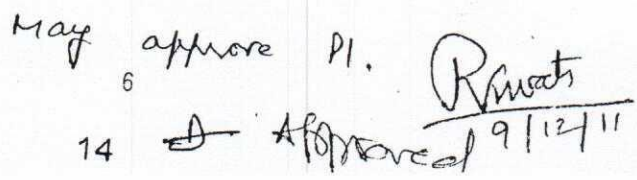 May approve Pl.
6
14 Approved 9/12/11